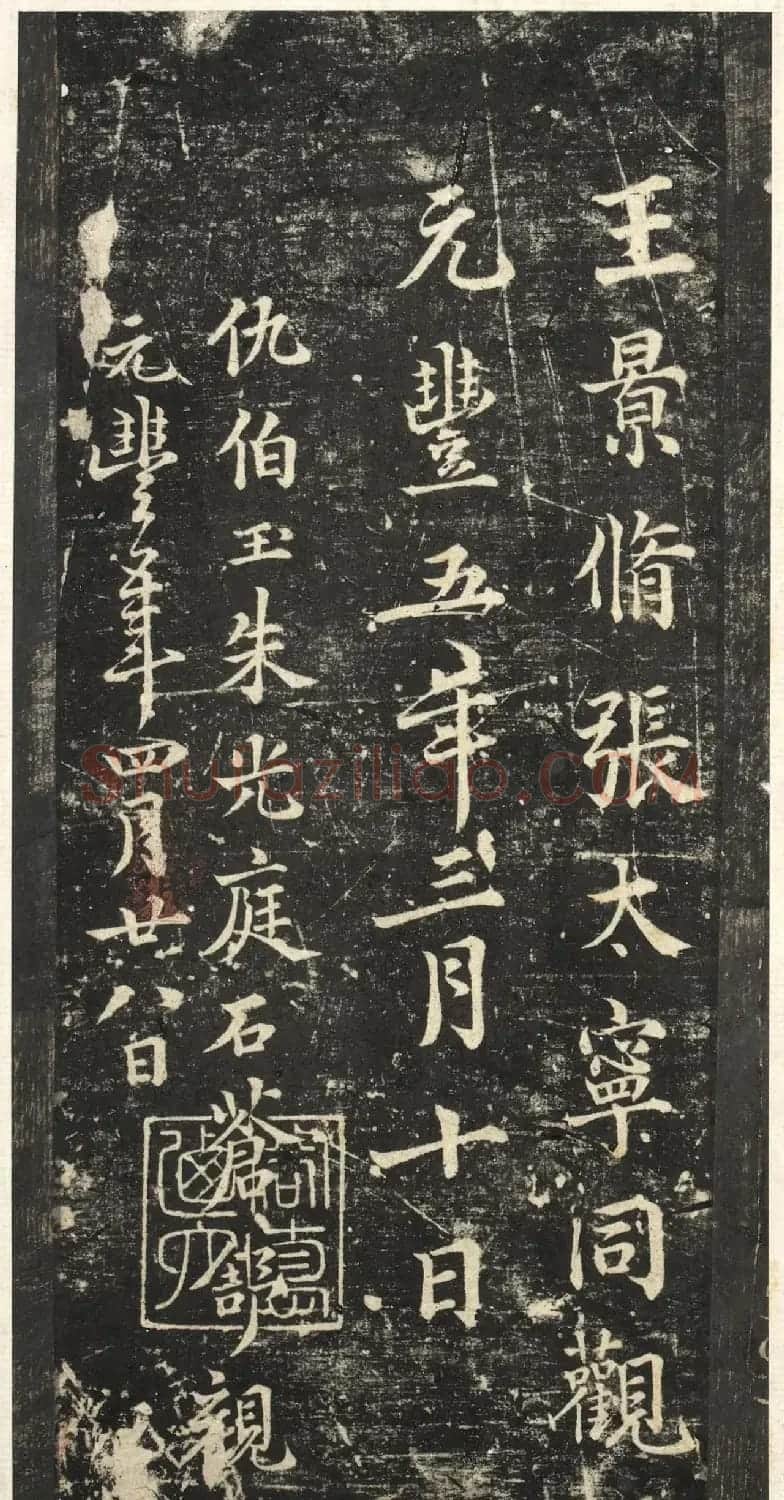 王景脩張太寧同觀
元豐五年三月十日
仇伯玉朱光庭石蒼舒觀
元豐五年四月廿八日
Shufaziliao.COM